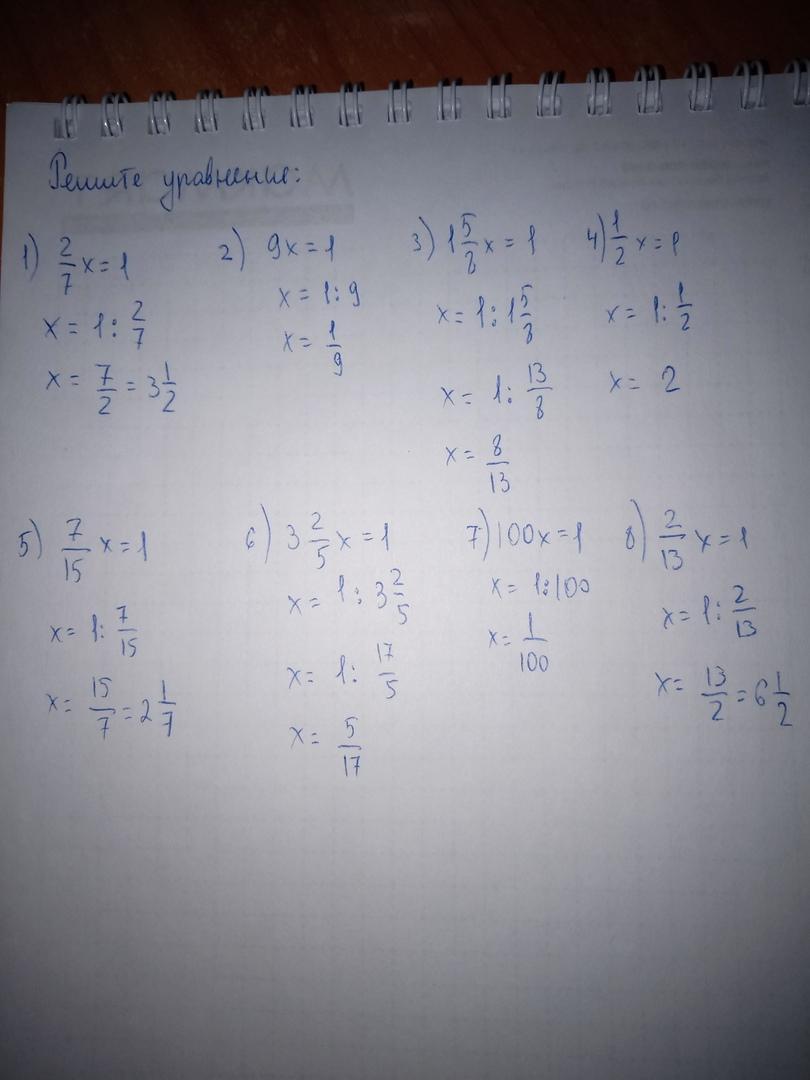 Решите уравнение:
1) 2/7 x = 1
x = 1 : 2/7
x = 7/2 = 3 1/2
2) 9x = 1
x = 1 : 9
x = 1/9
3) 1 5/8 x = 1
x = 1 : 1 5/8
x = 1 : 13/8
x = 8/13
4) 1/2 x = 1
x = 1 : 1/2
x = 2
5) 7/15 x = 1
x = 1 : 7/15
x = 15/7 = 2 1/7
6) 3 2/5 x = 1
x = 1 : 3 2/5
x = 1 : 17/5
x = 5/17
7) 100x = 1
x = 1 : 100
x = 1/100
8) 2/13 x = 1
x = 1 : 2/13
x = 13/2 = 6 1/2